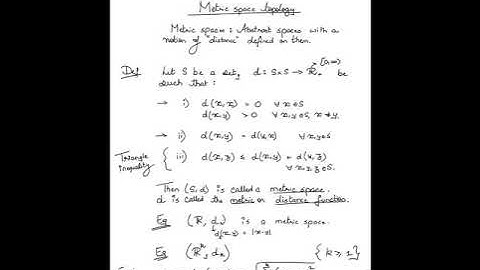 Metric space topology
Metric spaces : Abstract spaces with a
notion of "distance" defined on them.
Def Let S be a set, d : S×S → ℝ₊ [0,∞) be
such that :
→ i) d(x,x) = 0 ∀ x∈S
d(x,y) > 0 ∀ x,y∈S, x≠y.
→ ii) d(x,y) = d(y,x) ∀ x,y∈S
Triangle inequality { iii) d(x,z) ≤ d(x,y) + d(y,z)
∀ x,y,z∈S.
Then (S,d) is called a metric space.
d is called the metric or distance function.
Eg (ℝ, d₁) is a metric space.
d₁(x,y) = |x-y|
Eg (ℝᵏ, dₖ) {k ≥ 1}